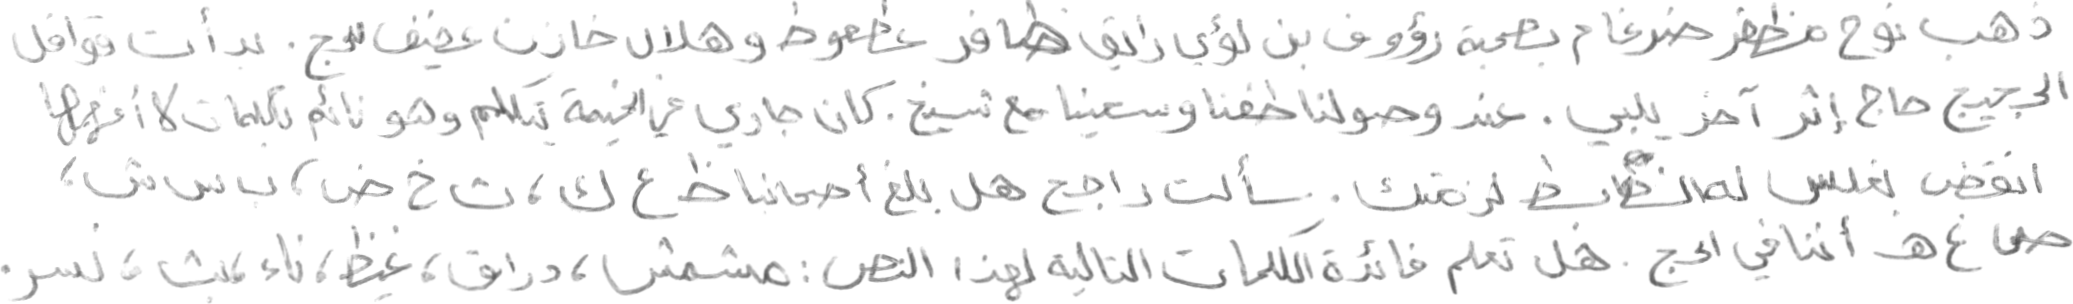 ذهب نوح مظفر ضرغام بصحبة رؤوف بن لؤي رائق ظافر عظعوط وهلال خازن عفيف للحج . بدأت قوافل
الحجيج حاج إثر آخر يلبي . عند وصولنا طفنا وسعينا مع شيخ . كان جاري في الخيمة يتكلم وهو نائم بكلمات لا أفهمها
انقض لغلس له الظابط لزمتك . سألت راجح هل بلغ أصحابنا ظ ع ك ، ث خ ض ، ب س ش ،
ص غ هـ أننا في الحج . هل تعلم فائدة الكلمات التالية لهذا النص : مشمش ، دراق ، غيظ ، ناء ، بث ، نسر .